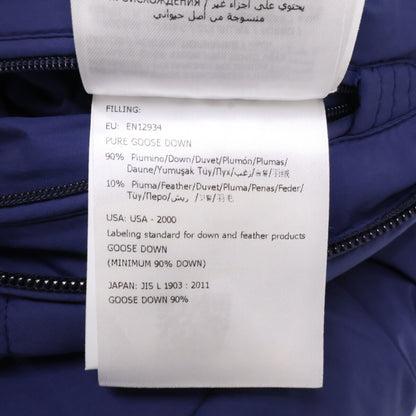 ПРОИСХОЖДЕНИЯ / يحتوي على أجزاء غير
من أصل حيواني
FILLING:
EU: EN12934
PURE GOOSE DOWN
90% Piumino/Down/Duvet/Plumón/Plumas/
Daune/Yumuşak Tüy/Пух/زغب/羽絨/羽绒
10% Piuma/Feather/Duvet/Pluma/Penas/Feder/
Tüy/Перо/ريش/羽毛
USA: USA - 2000
Labeling standard for down and feather products
GOOSE DOWN
(MINIMUM 90% DOWN)
JAPAN: JIS L 1903 : 2011
GOOSE DOWN 90%